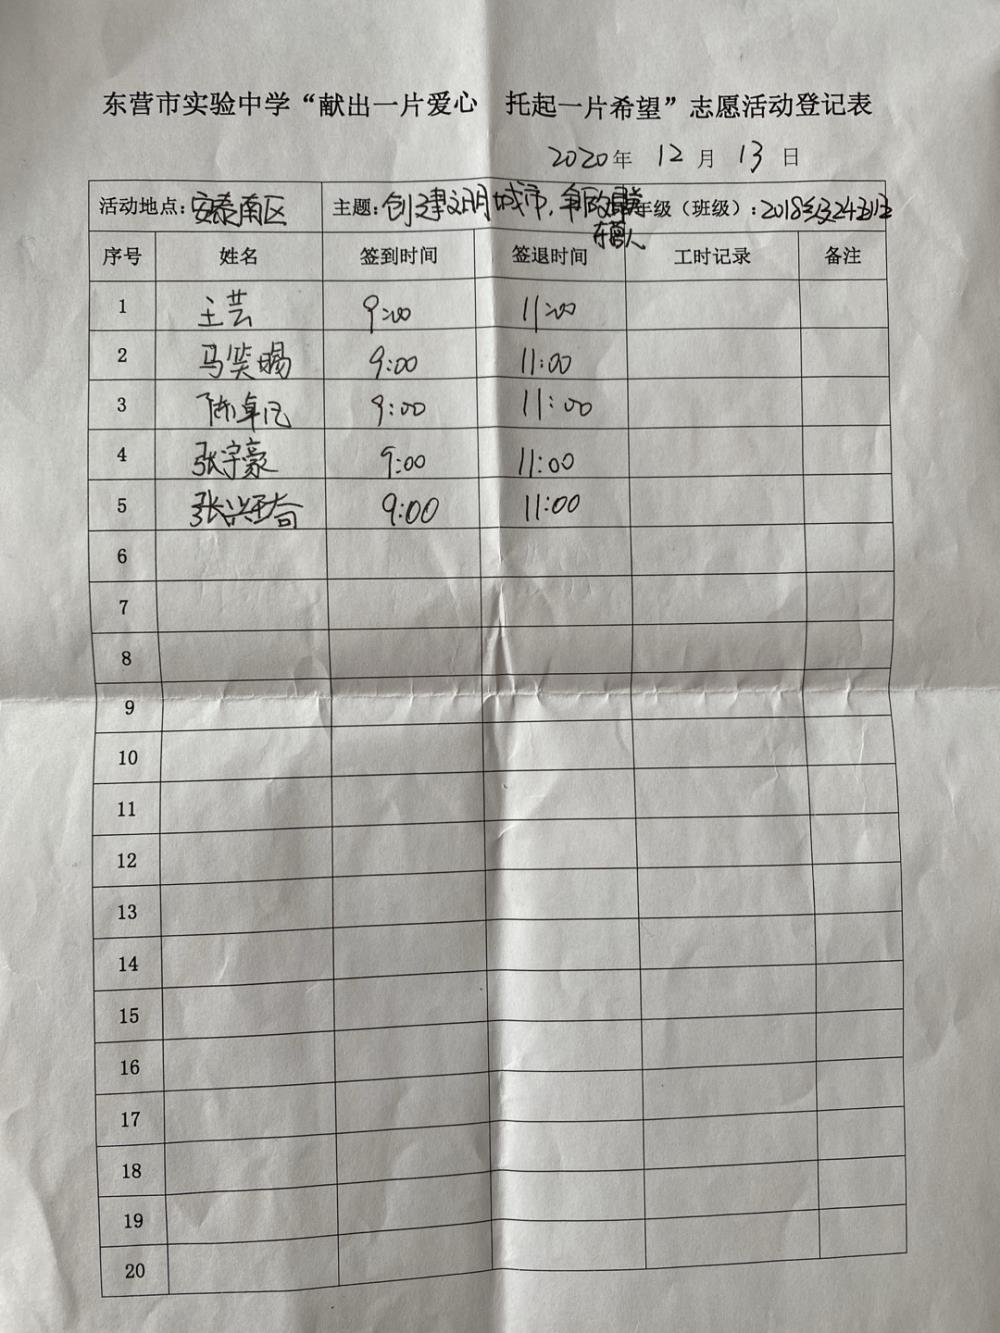 东营市实验中学“献出一片爱心 托起一片希望”志愿活动登记表
2020年 12月 13日
活动地点：安泰南区 主题：创建文明城市，争做 年级（班级）：2018级24班
东营人
序号 姓名 签到时间 签退时间 工时记录 备注
1 王芸 9:00 11:00
2 马笑赐 9:00 11:00
3 陈卓凡 9:00 11:00
4 张宇豪 9:00 11:00
5 张 9:00 11:00
6
7
8
9
10
11
12
13
14
15
16
17
18
19
20